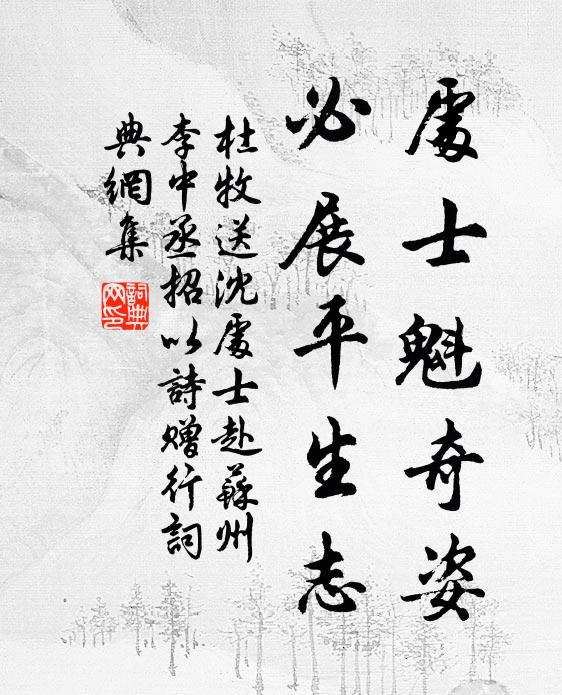 處士魁奇姿
必展平生志
杜牧送沈處士赴蘇州
李中丞招以詩贈行詞
典網集
詞典
网印